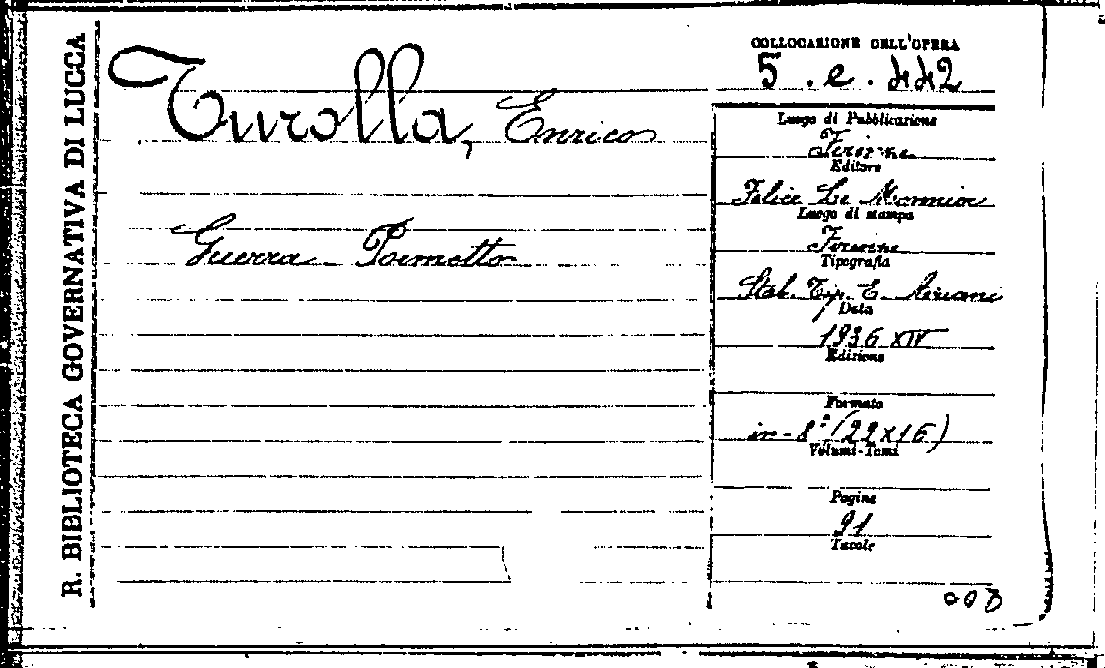 R. BIBLIOTECA GOVERNATIVA DI LUCCA
Turolla, Enrico
Guerra Poemetto
COLLOCAZIONE DELL'OPERA
5. e. 442
Luogo di Pubblicazione
Firenze
Editore
Felice Le Monnier
Luogo di stampa
Firenze
Tipografia
Stab. Tip. E. Ariani
Data
1936 XIV
Edizione
Formato
in-8° (22x16)
Volumi-Tomi
Pagine
91
Tavole